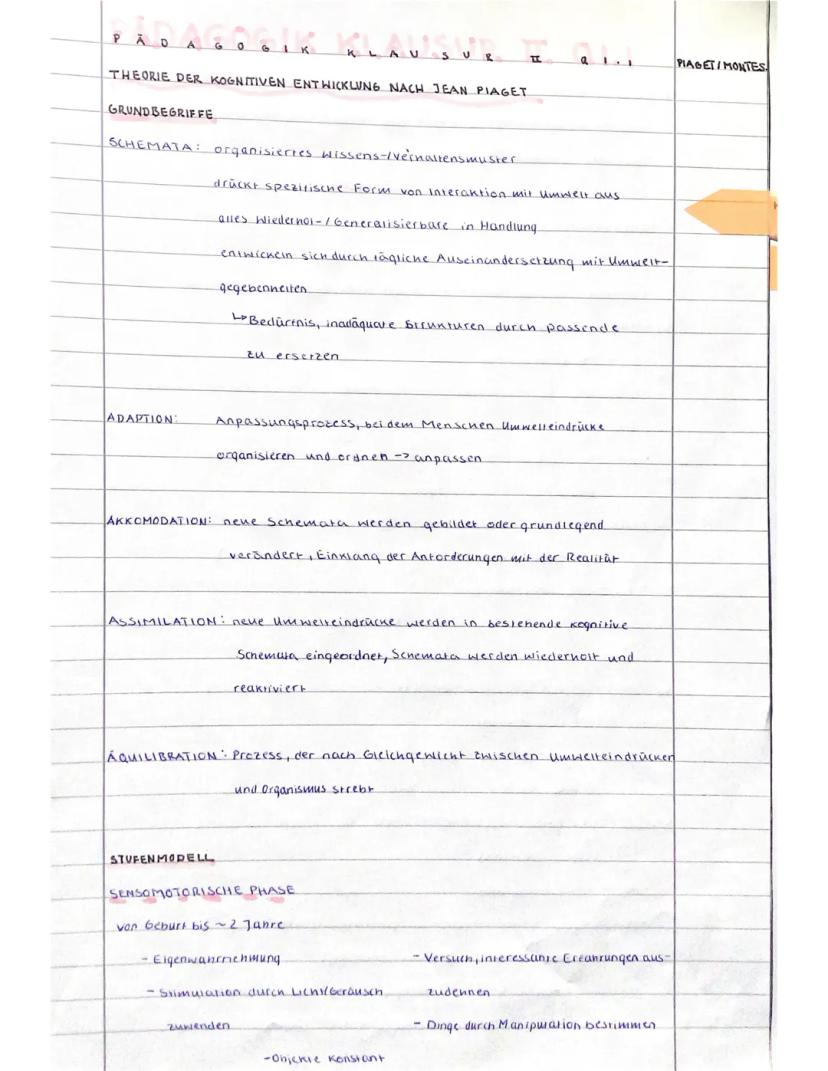 PÄDAGOGIK KLAUSUR II Q1.1
PIAGET/MONTES.
THEORIE DER KOGNITIVEN ENTWICKLUNG NACH JEAN PIAGET
GRUNDBEGRIFFE
SCHEMATA: organisiertes Wissens-/Verhaltensmuster
drückt spezifische Form von Interaktion mit Umwelt aus
alles Wiederhol-/Generalisierbare in Handlung
entwickeln sich durch tägliche Auseinandersetzung mit Umwelt-
gegebenheiten
↳ Bedürfnis, inadäquate Strukturen durch passende
zu ersetzen
ADAPTION: Anpassungsprozess, bei dem Menschen Umwelteindrücke
organisieren und ordnen -> anpassen
AKKOMODATION: neue Schemata werden gebildet oder grundlegend
verändert, Einklang der Anforderungen mit der Realität
ASSIMILATION: neue Umwelteindrücke werden in bestehende kognitive
Schemata eingeordnet, Schemata werden wiederholt und
reaktiviert
ÄQUILIBRATION: Prozess, der nach Gleichgewicht zwischen Umwelteindrücken
und Organismus strebt
STUFENMODELL
SENSOMOTORISCHE PHASE
von Geburt bis ~2 Jahre
- Eigenwahrnehmung
- Stimulation durch Licht/Geräusch
zuwenden
- Versuch, interessante Erfahrungen aus-
zudehnen
- Dinge durch Manipulation bestimmen
- Objekte konstant